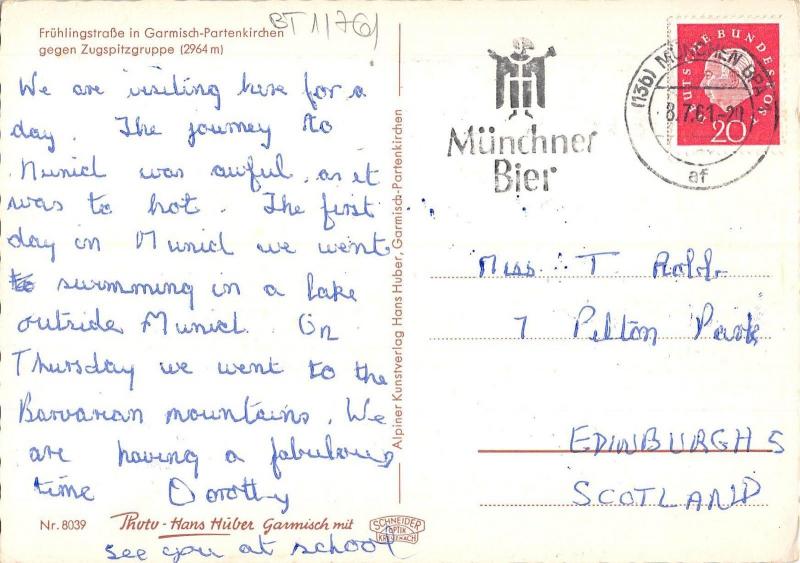 Frühlingstraße in Garmisch-Partenkirchen
gegen Zugspitzgruppe (2964 m)
BT 11761
We are visiting here for a
day. The journey to
Munich was awful, as it
was to hot. The first
day in Munich we went
swimming in a lake
outside Munich. On
Thursday we went to the
Barvarian mountains. We
are having a fabulous
time Dorothy
see you at school
Nr. 8039 Photo - Hans Huber Garmisch mit
SCHNEIDER
OPTIK
KREUZNACH
Alpiner Kunstverlag Hans Huber, Garmisch-Partenkirchen
Münchner
Bier
(13b) MÜNCHEN BPA
8.7.61.-20
af
DEUTSCHE BUNDESPOST
20
Miss T Robb
7 Pelton Park
EDINBURGH 5
SCOTLAND